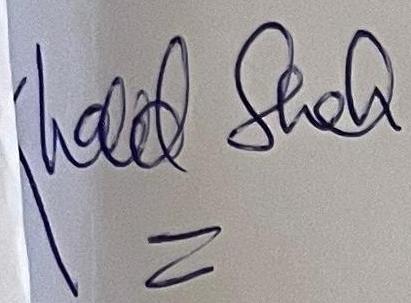 Khalid Shah